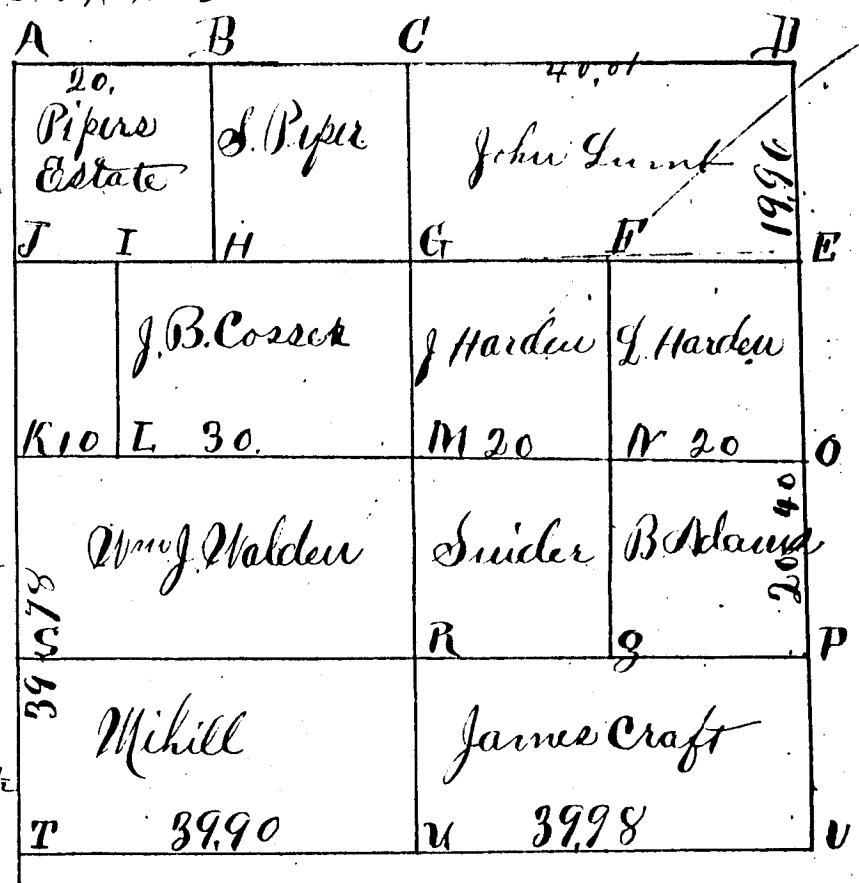 A B C D
20.
40,01
Pipers
Estate
S. Piper
John Lunt
19,96
J I H G F E
J. B. Cossek
J Harden
L. Harden
K 10 L 30. M 20 N 20 O
Wm J. Walden
Snider
B Adams
20 40
R Q P
39 S 78
Mihill
James Craft
T 39,90 U 39,98 V